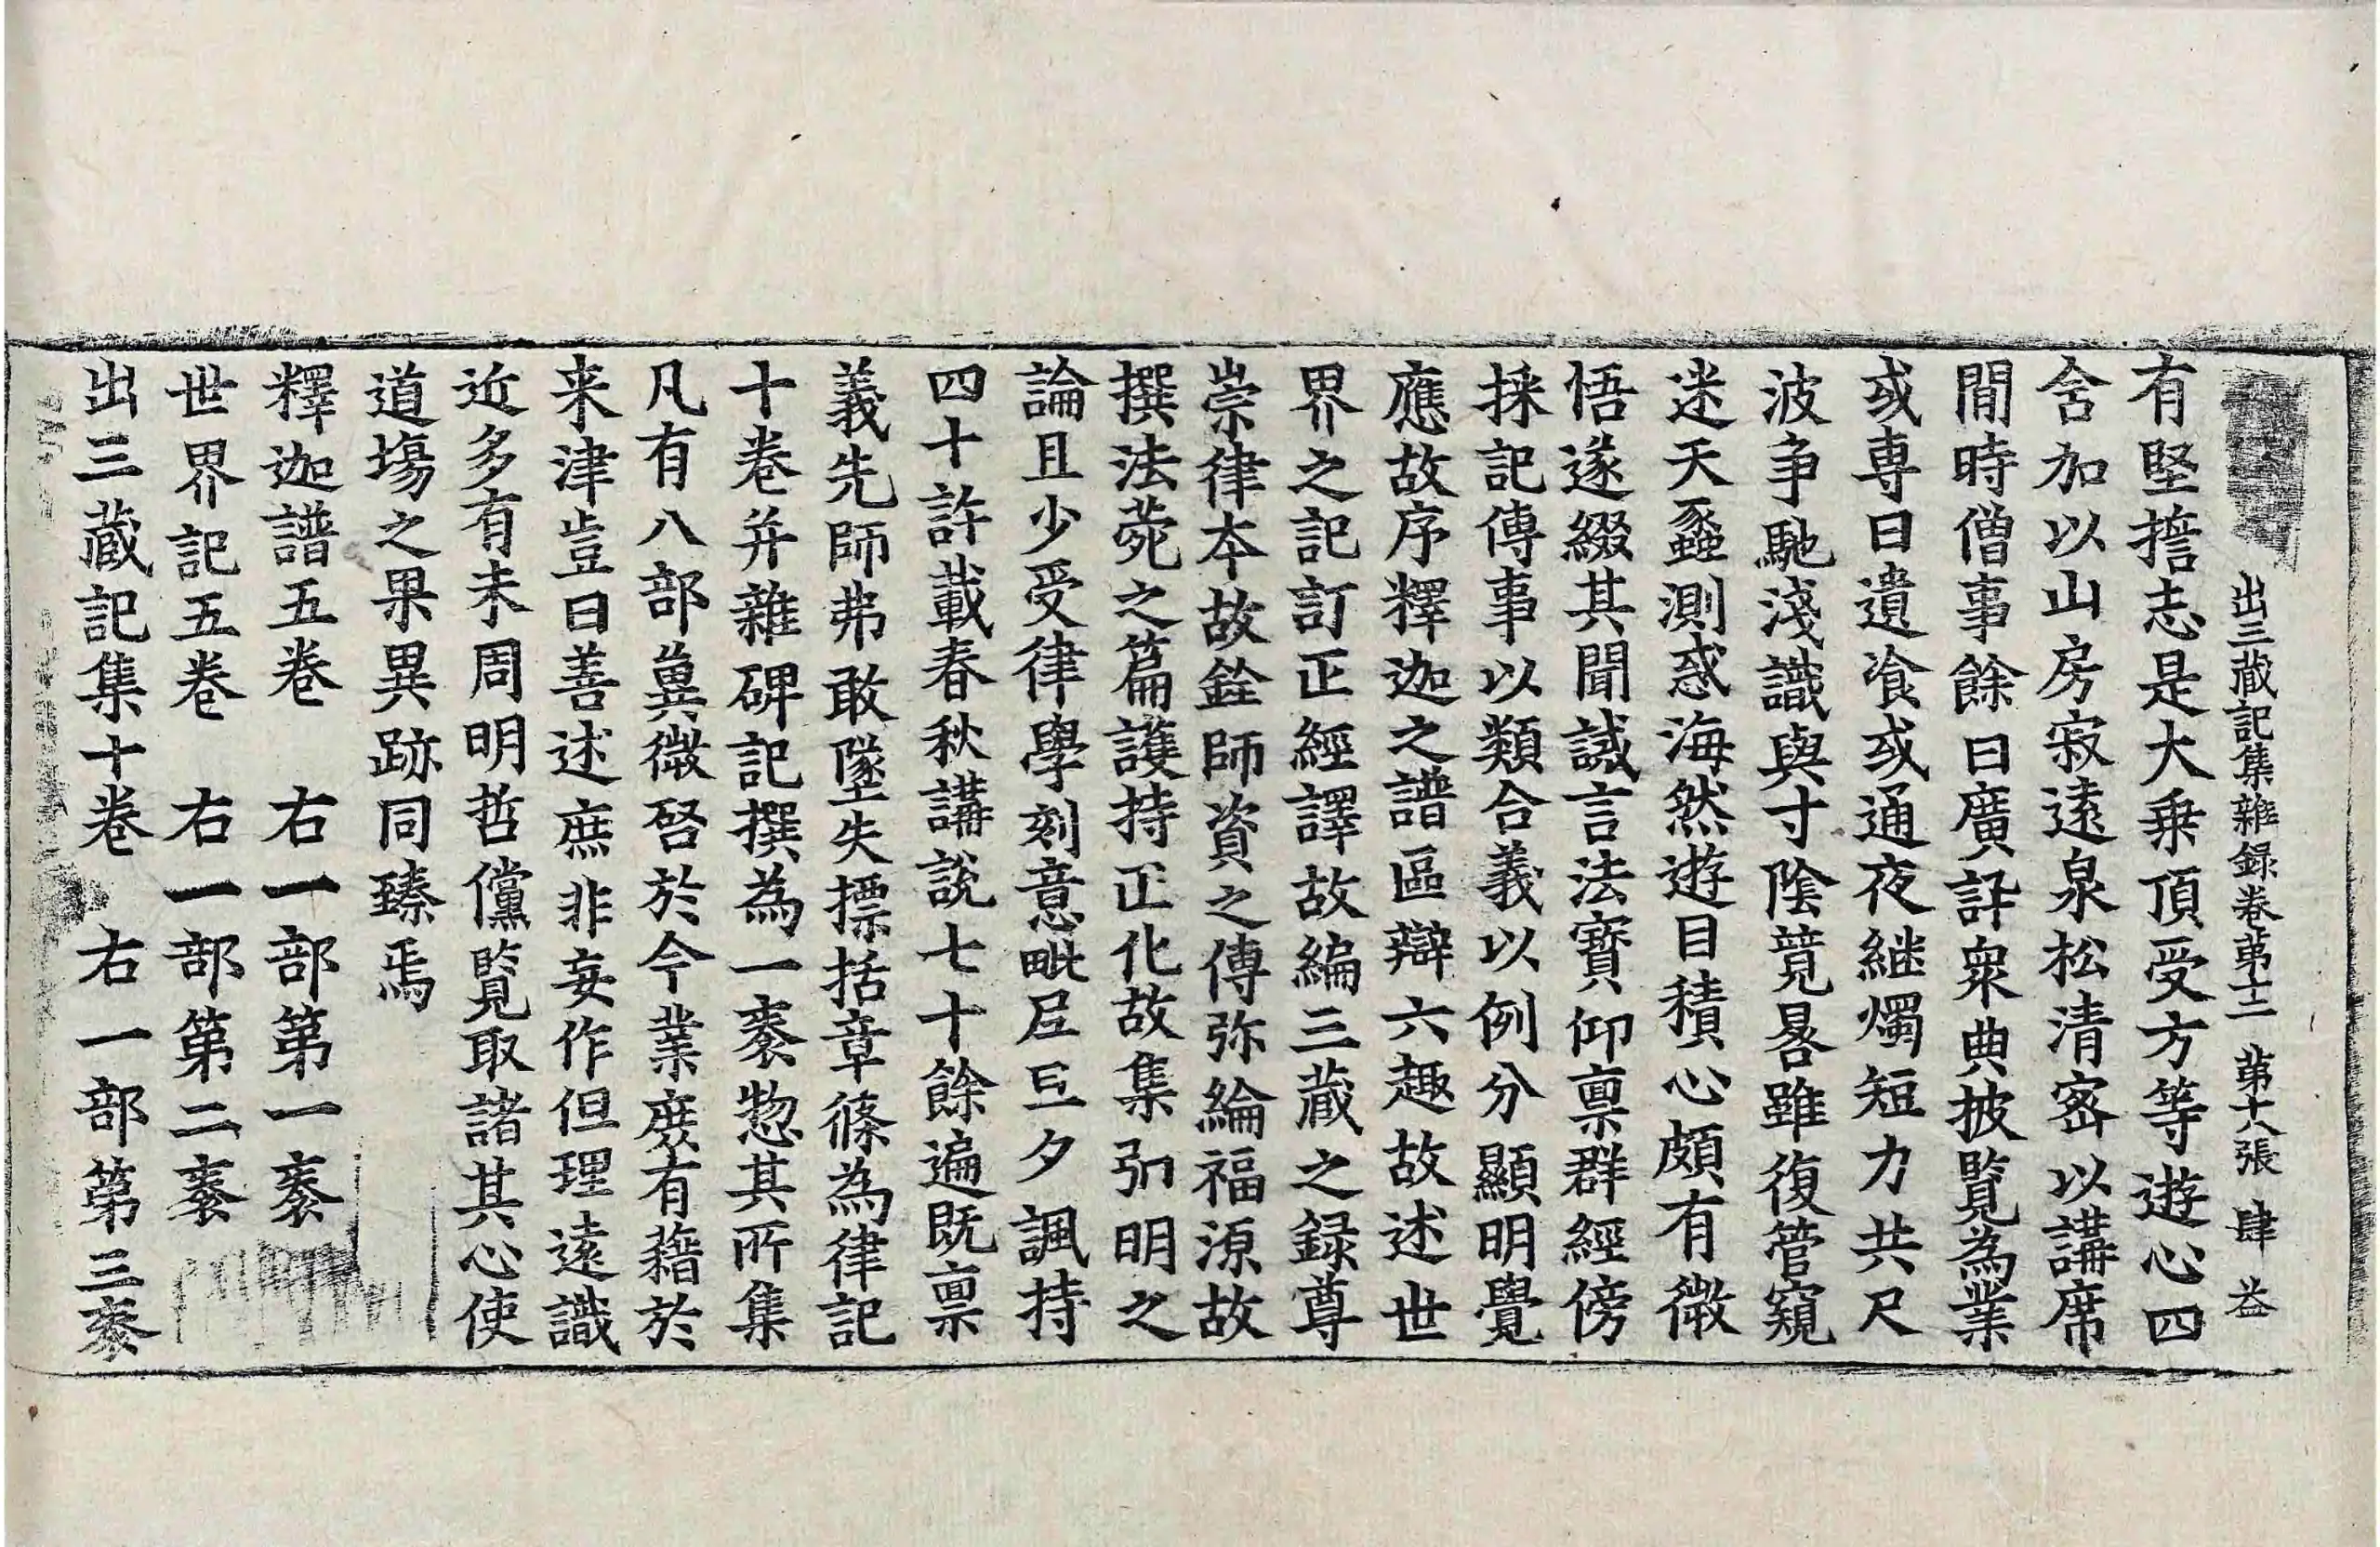 出三藏記集雜録卷苐十二　苐十八張　肆　益
有堅擔志是大乗頂受方等遊心四
舍加以山房寂遠泉松清宻以講席
閒時僧事餘日廣評衆典披覧為業
或専日遺飡或通夜継燭短力共尺
波爭馳淺識與寸陰競晷雖復管窺
迷天蠡測惑海然遊目積心頗有微
悟遂綴其聞誡言法寶仰禀群經傍
採記傳事以類合義以例分顯明覺
應故序釋迦之譜區辯六趣故述世
界之記訂正經譯故編三藏之録尊
崇律本故銓師資之傳弥綸福源故
撰法菀之篇護持正化故集弘明之
論且少受律學刻意毗尼旦夕諷持
四十許載春秋講説七十餘遍既禀
義先師弗敢墜失摽括章條為律記
十卷并雜碑記撰為一袠惣其所集
凡有八部兾微啓於今業庶有藉於
来津豈曰善述庶非妄作但理遠識
近多有未周明哲儻覧取諸其心使
道塲之果異跡同臻焉
釋迦譜五卷　右一部第一袠
世界記五卷　右一部第二袠
出三藏記集十卷　右一部第三袠